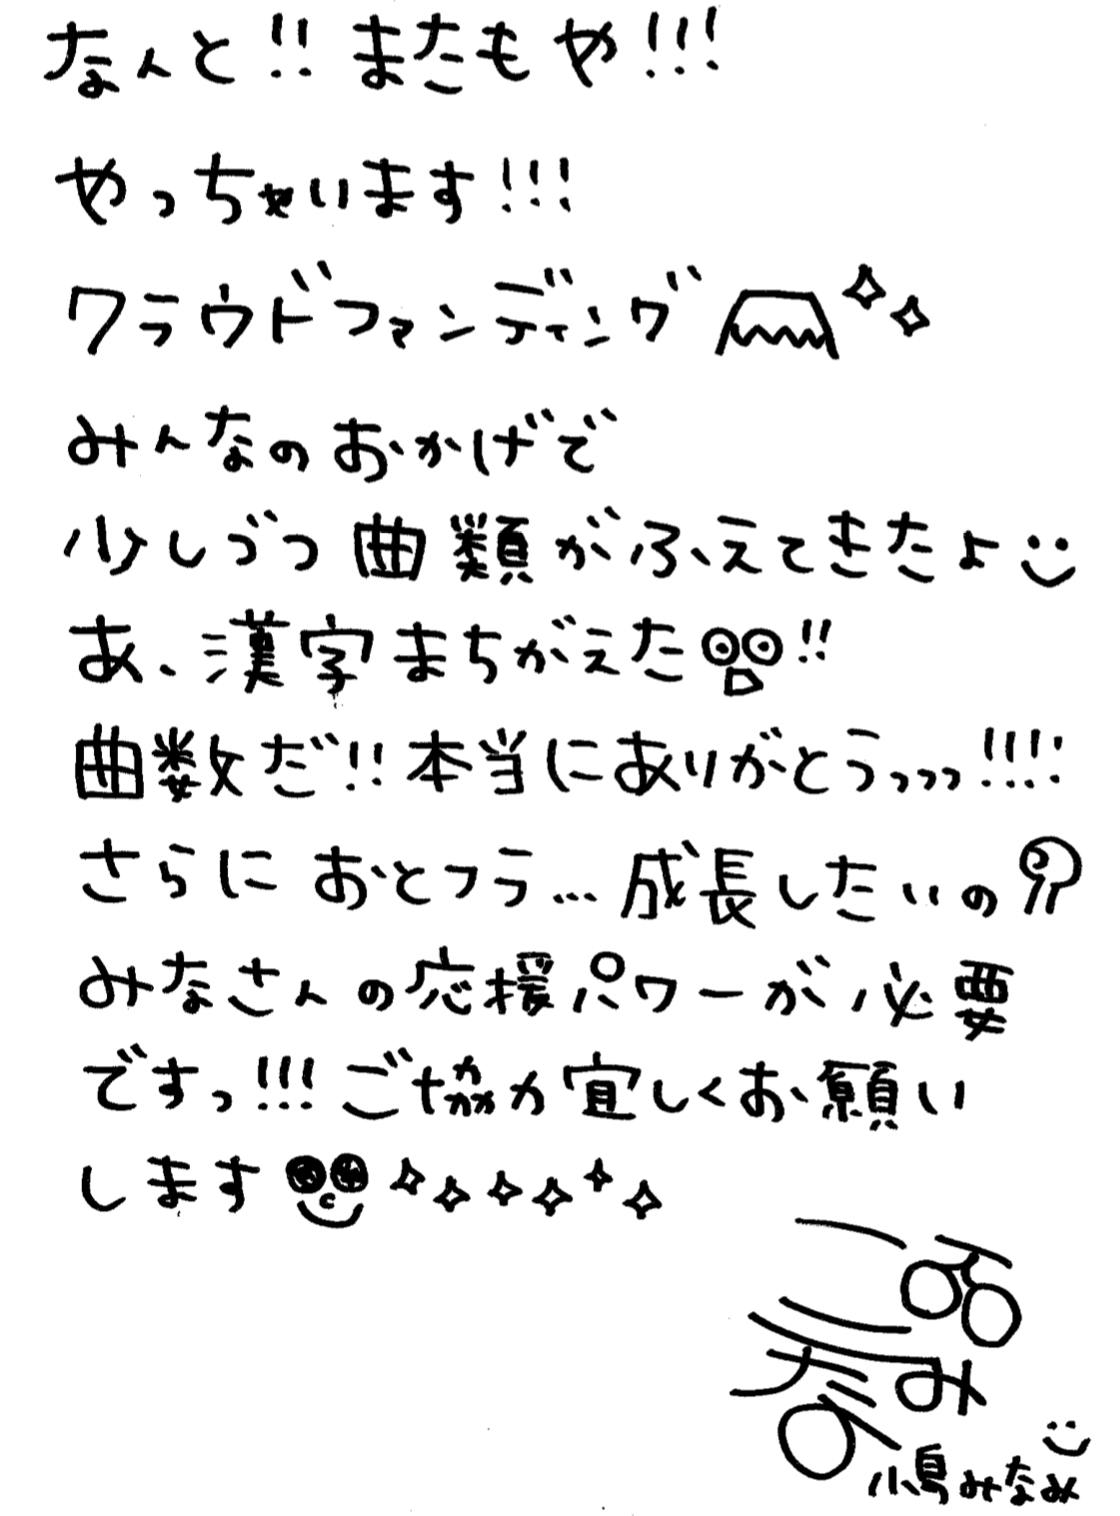 なんと!! またもや!!!
やっちゃいます!!!
クラウドファンディング
みんなのおかげで
少しづつ曲類がふえてきたよ
あ、漢字まちがえた!!
曲数だ!! 本当にありがとうっっっ!!!!
さらにおとフラ…成長したいの
みなさんの応援パワーが必要
ですっ!!! ご協力宜しくお願い
します
小鳥みなみ